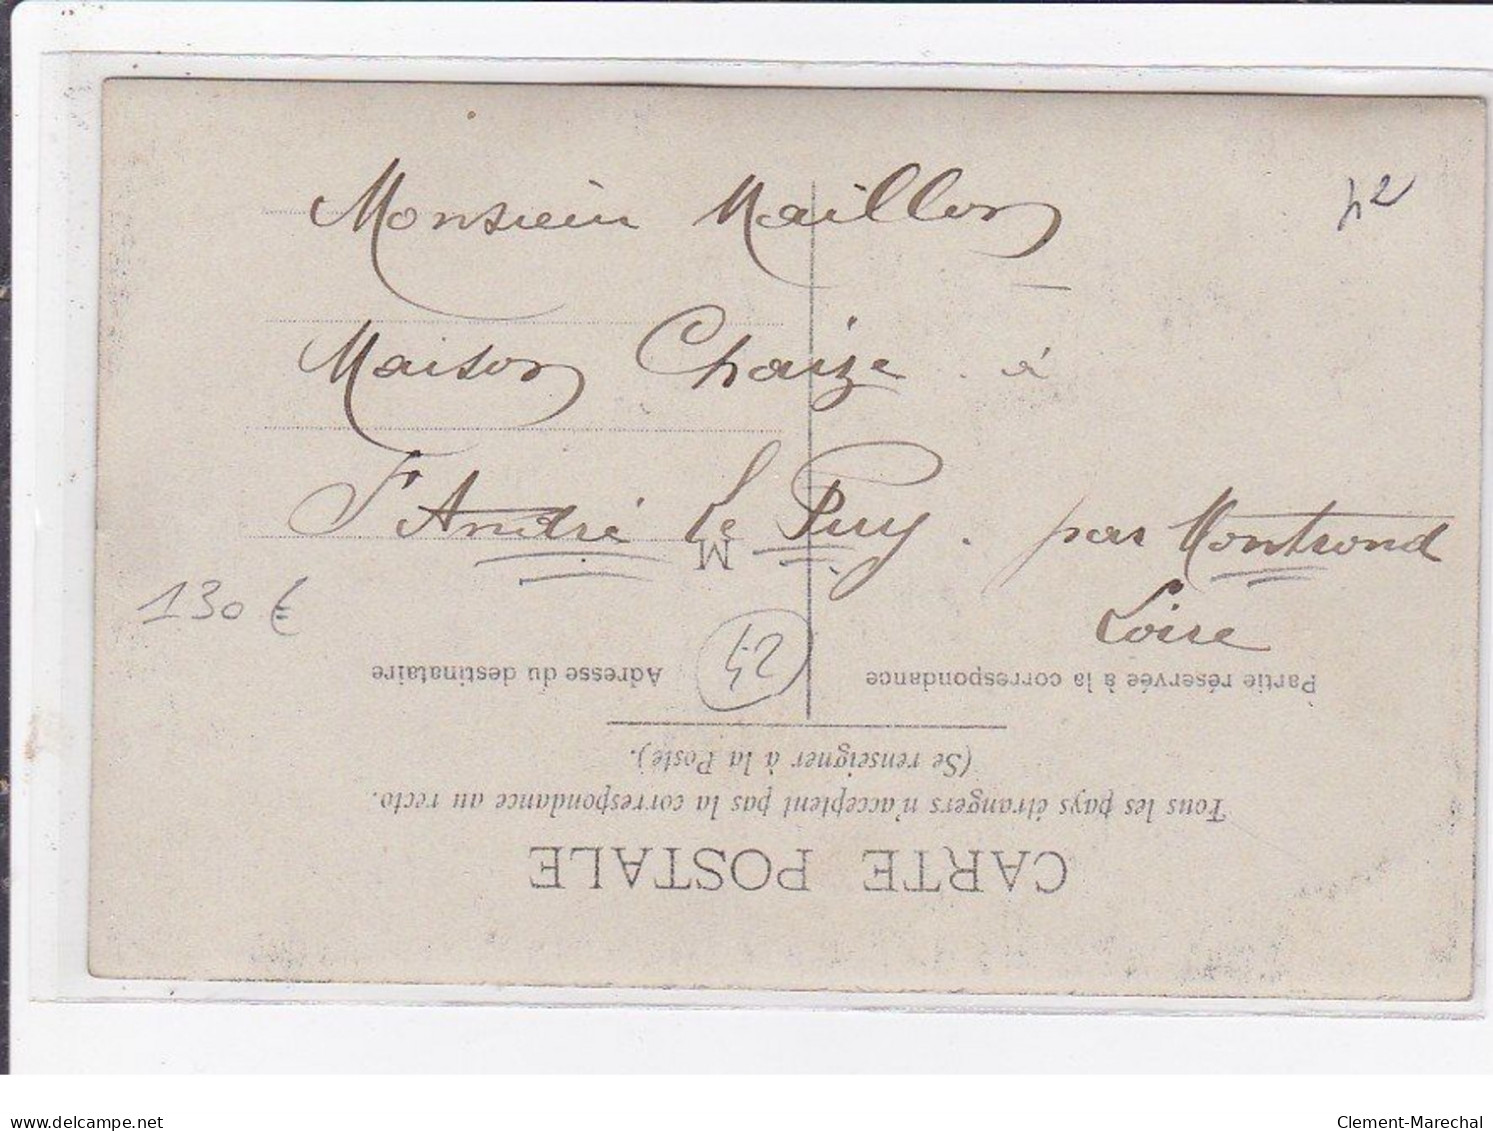 Monsieur Maillon
42
Maison Chaize . à
St André Le Puy . par Montrond
Loire
130 €
42
CARTE POSTALE
Tous les pays étrangers n'acceptent pas la correspondance au recto.
(Se renseigner à la Poste).
Partie réservée à la correspondance
Adresse du destinataire
M
delcampe.net
Clement-Marechal